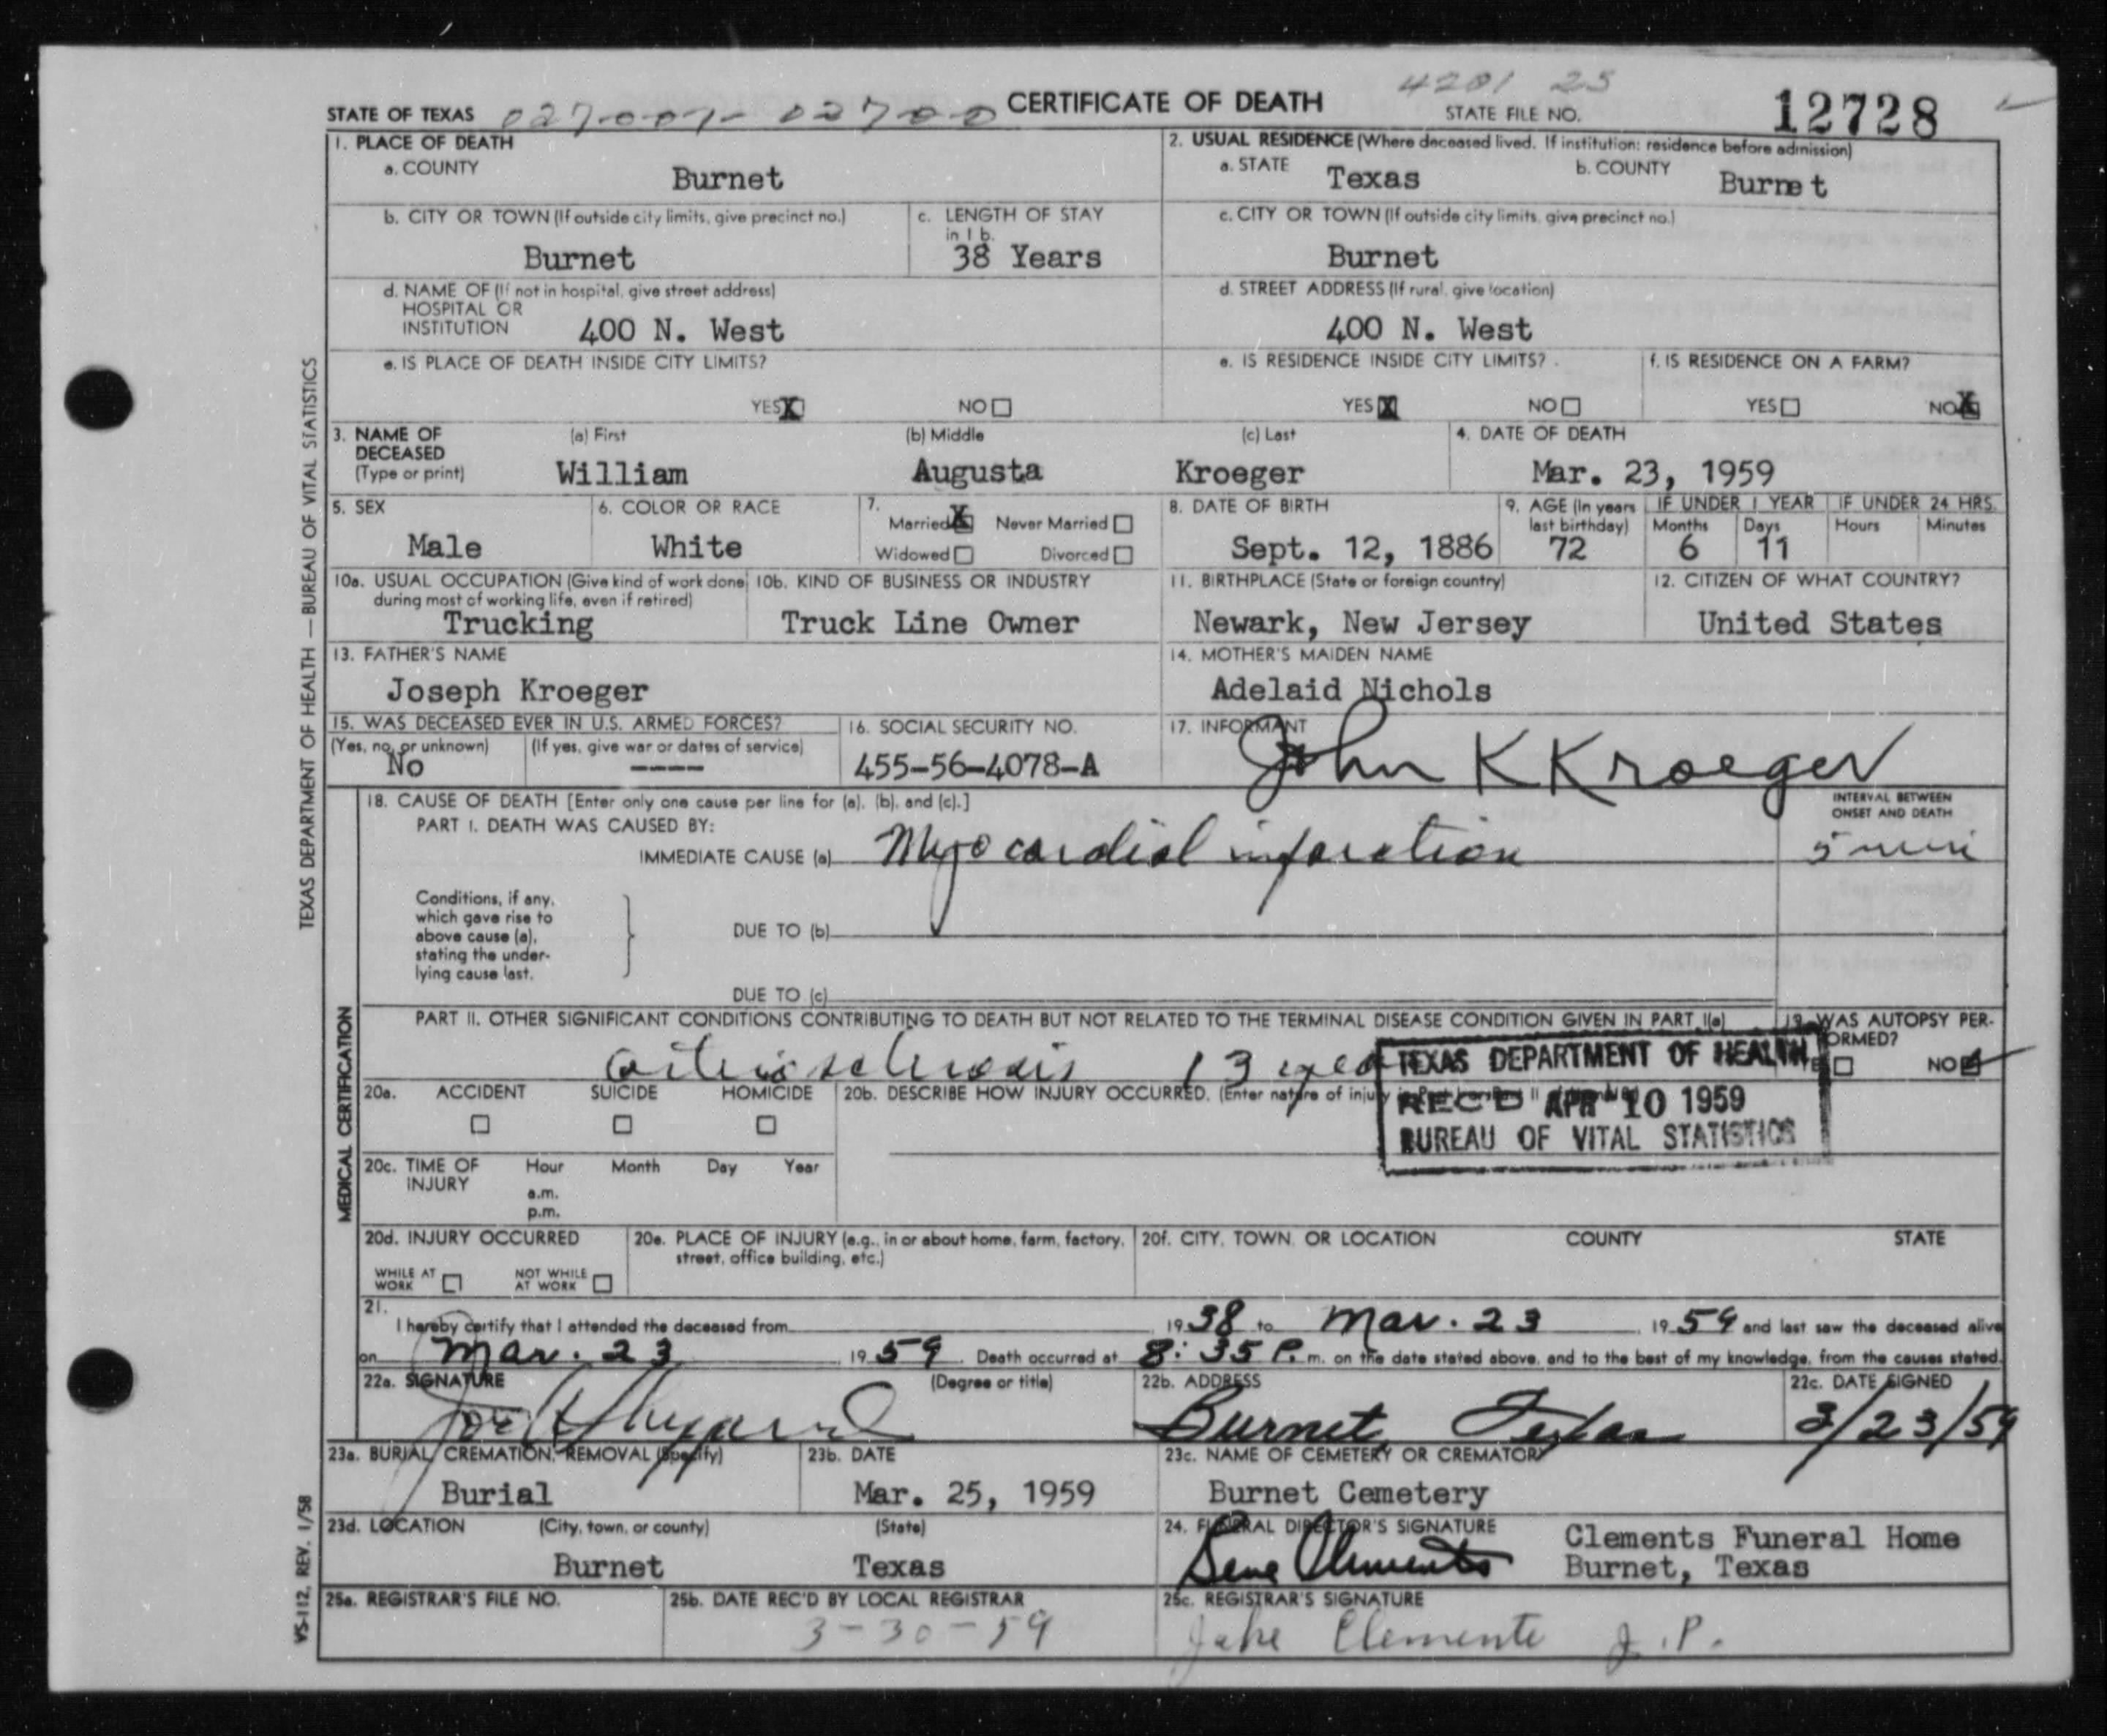 4201 25
STATE OF TEXAS 027-007-02700 CERTIFICATE OF DEATH STATE FILE NO. 12728
1. PLACE OF DEATH
a. COUNTY Burnet
2. USUAL RESIDENCE (Where deceased lived. If institution: residence before admission)
a. STATE Texas b. COUNTY Burnet
b. CITY OR TOWN (If outside city limits, give precinct no.) Burnet
c. LENGTH OF STAY in 1 b. 38 Years
c. CITY OR TOWN (If outside city limits, give precinct no.) Burnet
d. NAME OF (If not in hospital, give street address)
HOSPITAL OR
INSTITUTION 400 N. West
d. STREET ADDRESS (If rural, give location)
400 N. West
e. IS PLACE OF DEATH INSIDE CITY LIMITS?
YES X NO
e. IS RESIDENCE INSIDE CITY LIMITS?
YES X NO
f. IS RESIDENCE ON A FARM?
YES NO X
3. NAME OF DECEASED (Type or print)
(a) First William
(b) Middle Augusta
(c) Last Kroeger
4. DATE OF DEATH
Mar. 23, 1959
5. SEX Male
6. COLOR OR RACE White
7. Married X Never Married
Widowed Divorced
8. DATE OF BIRTH Sept. 12, 1886
9. AGE (In years last birthday) 72
IF UNDER 1 YEAR Months 6 Days 11
IF UNDER 24 HRS. Hours Minutes
10a. USUAL OCCUPATION (Give kind of work done during most of working life, even if retired)
Trucking
10b. KIND OF BUSINESS OR INDUSTRY
Truck Line Owner
11. BIRTHPLACE (State or foreign country)
Newark, New Jersey
12. CITIZEN OF WHAT COUNTRY?
United States
13. FATHER'S NAME
Joseph Kroeger
14. MOTHER'S MAIDEN NAME
Adelaid Nichols
15. WAS DECEASED EVER IN U.S. ARMED FORCES?
(Yes, no, or unknown) No
(If yes, give war or dates of service) ----
16. SOCIAL SECURITY NO.
455-56-4078-A
17. INFORMANT
John K Kroeger
18. CAUSE OF DEATH [Enter only one cause per line for (a), (b), and (c).]
INTERVAL BETWEEN ONSET AND DEATH
PART I. DEATH WAS CAUSED BY:
IMMEDIATE CAUSE (a) Myocardial infarction 5 min
Conditions, if any,
which gave rise to
above cause (a),
stating the under-
lying cause last.
DUE TO (b)
DUE TO (c)
PART II. OTHER SIGNIFICANT CONDITIONS CONTRIBUTING TO DEATH BUT NOT RELATED TO THE TERMINAL DISEASE CONDITION GIVEN IN PART I(a)
arteriosclerosis 13
19. WAS AUTOPSY PER-
FORMED?
NO
TEXAS DEPARTMENT OF HEALTH
REC'D APR 10 1959
BUREAU OF VITAL STATISTICS
20a. ACCIDENT SUICIDE HOMICIDE
20b. DESCRIBE HOW INJURY OCCURRED. (Enter nature of injury
20c. TIME OF INJURY Hour Month Day Year
a.m.
p.m.
20d. INJURY OCCURRED
WHILE AT WORK NOT WHILE AT WORK
20e. PLACE OF INJURY (e.g., in or about home, farm, factory, street, office building, etc.)
20f. CITY, TOWN, OR LOCATION COUNTY STATE
21.
I hereby certify that I attended the deceased from 1938 to Mar. 23, 1959 and last saw the deceased alive
on Mar. 23 1959. Death occurred at 8:35 P.m. on the date stated above, and to the best of my knowledge, from the causes stated.
22a. SIGNATURE (Degree or title)
Joe
22b. ADDRESS
Burnet, Texas
22c. DATE SIGNED
3/23/59
23a. BURIAL, CREMATION, REMOVAL (Specify)
Burial
23b. DATE
Mar. 25, 1959
23c. NAME OF CEMETERY OR CREMATORY
Burnet Cemetery
23d. LOCATION (City, town, or county) (State)
Burnet Texas
24. FUNERAL DIRECTOR'S SIGNATURE
Gene Clements
Clements Funeral Home
Burnet, Texas
25a. REGISTRAR'S FILE NO.
25b. DATE REC'D BY LOCAL REGISTRAR
3-30-59
25c. REGISTRAR'S SIGNATURE
Jake Clements J.P.
TEXAS DEPARTMENT OF HEALTH — BUREAU OF VITAL STATISTICS
MEDICAL CERTIFICATION
VS-112, REV. 1/58